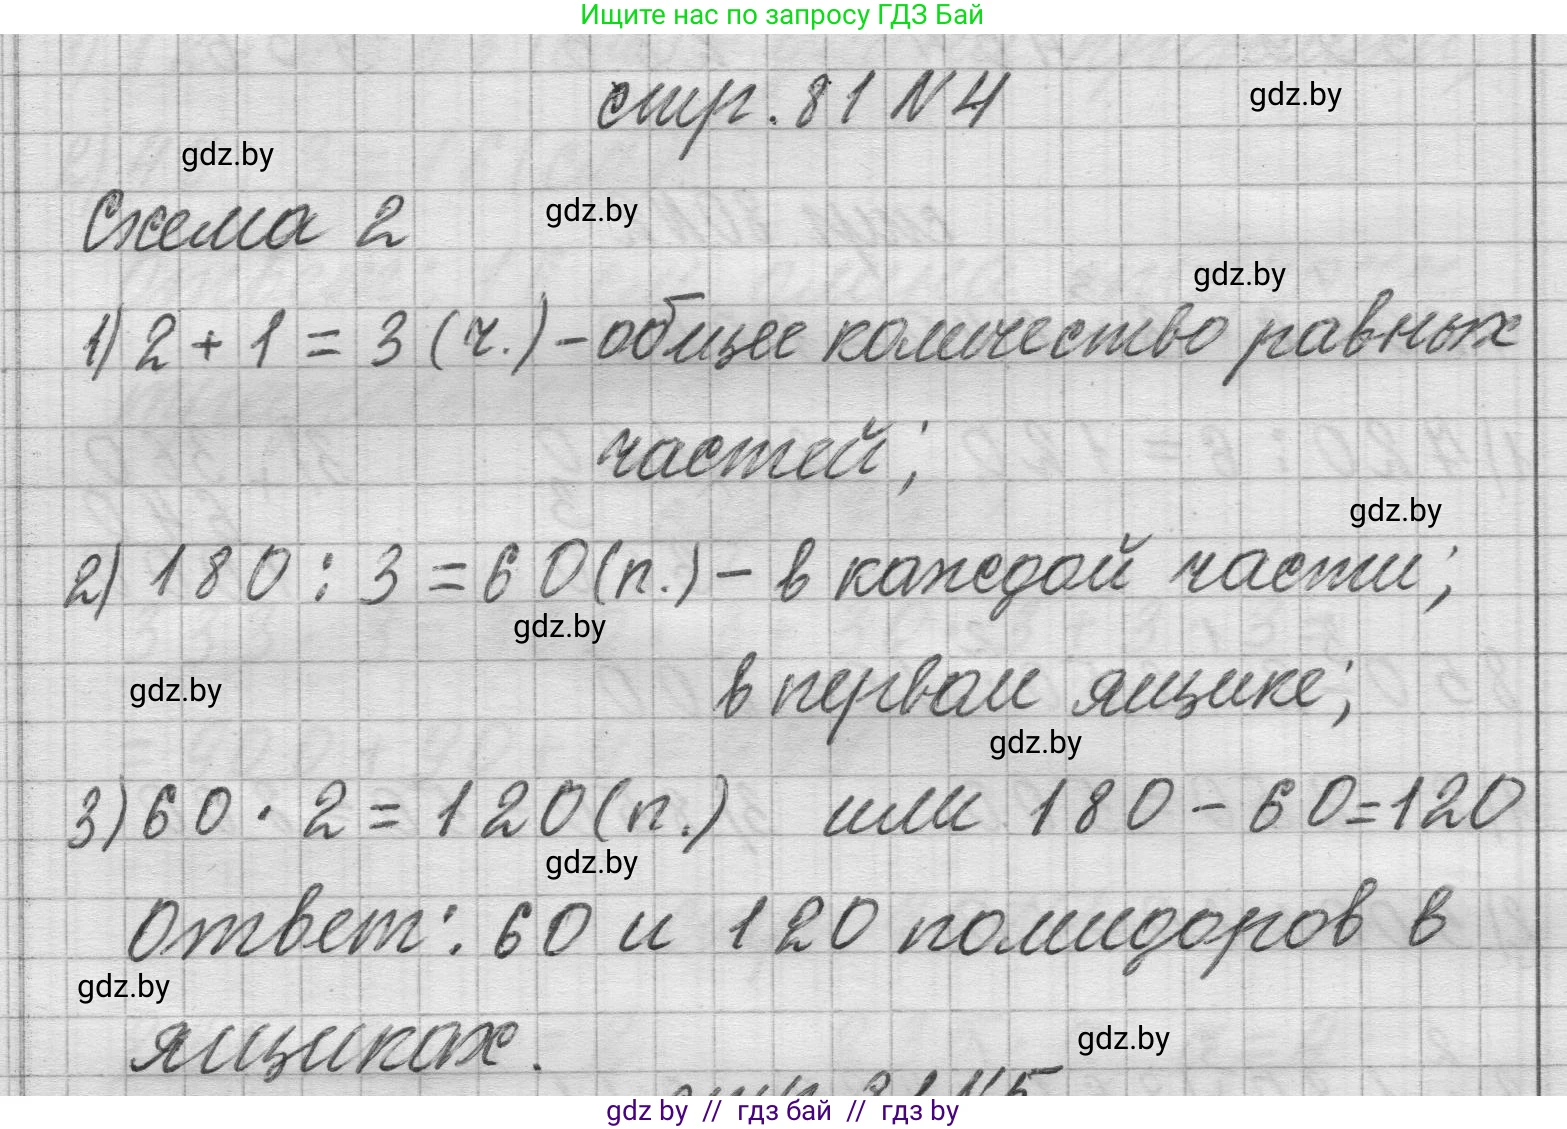 Ищите нас по запросу ГДЗ Бай
стр. 81 N 4
gdz.by
gdz.by
Схема 2
gdz.by
gdz.by
1) 2 + 1 = 3 (ч.) - общее количество равных
частей;
gdz.by
2) 180 : 3 = 60 (п.) - в каждой части;
gdz.by
в первом ящике;
gdz.by
gdz.by
3) 60 · 2 = 120 (п.) или 180 - 60 = 120
gdz.by
Ответ: 60 и 120 помидоров в
gdz.by
ящиках.
gdz.by
стр. 81 N 5
gdz by // гдз бай // гдз by